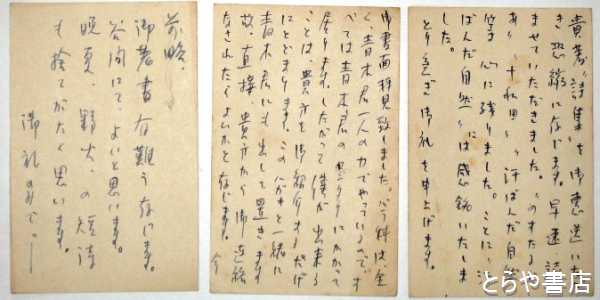 貴著「詩集」を御恵送いただ
き恐縮に存じます。早速読
ませていただきました。
あり」「十和田」「汗ばんだ自然」
等心に残りました。ことに「汗
ばんだ自然」には感銘いたしま
した。
とり急ぎ御礼を申上げます。
御書面拝見致しました。バラ
く、青木君一人の力でやっているのです
べては青木君の
居ります。したがって僕が出来る
ことは、貴方を御紹介するだけ
にとどまります。このハガキと一緒に
青木君にも出して置きます
故、直接貴方から御連絡
なされたらよいかと存じます。
前略、
御著書有難う存じます。
谷間にて、よいと思います。
晩夏、野火、の短詩
も捨てがたく思います。
御礼のみで。
とらや書店